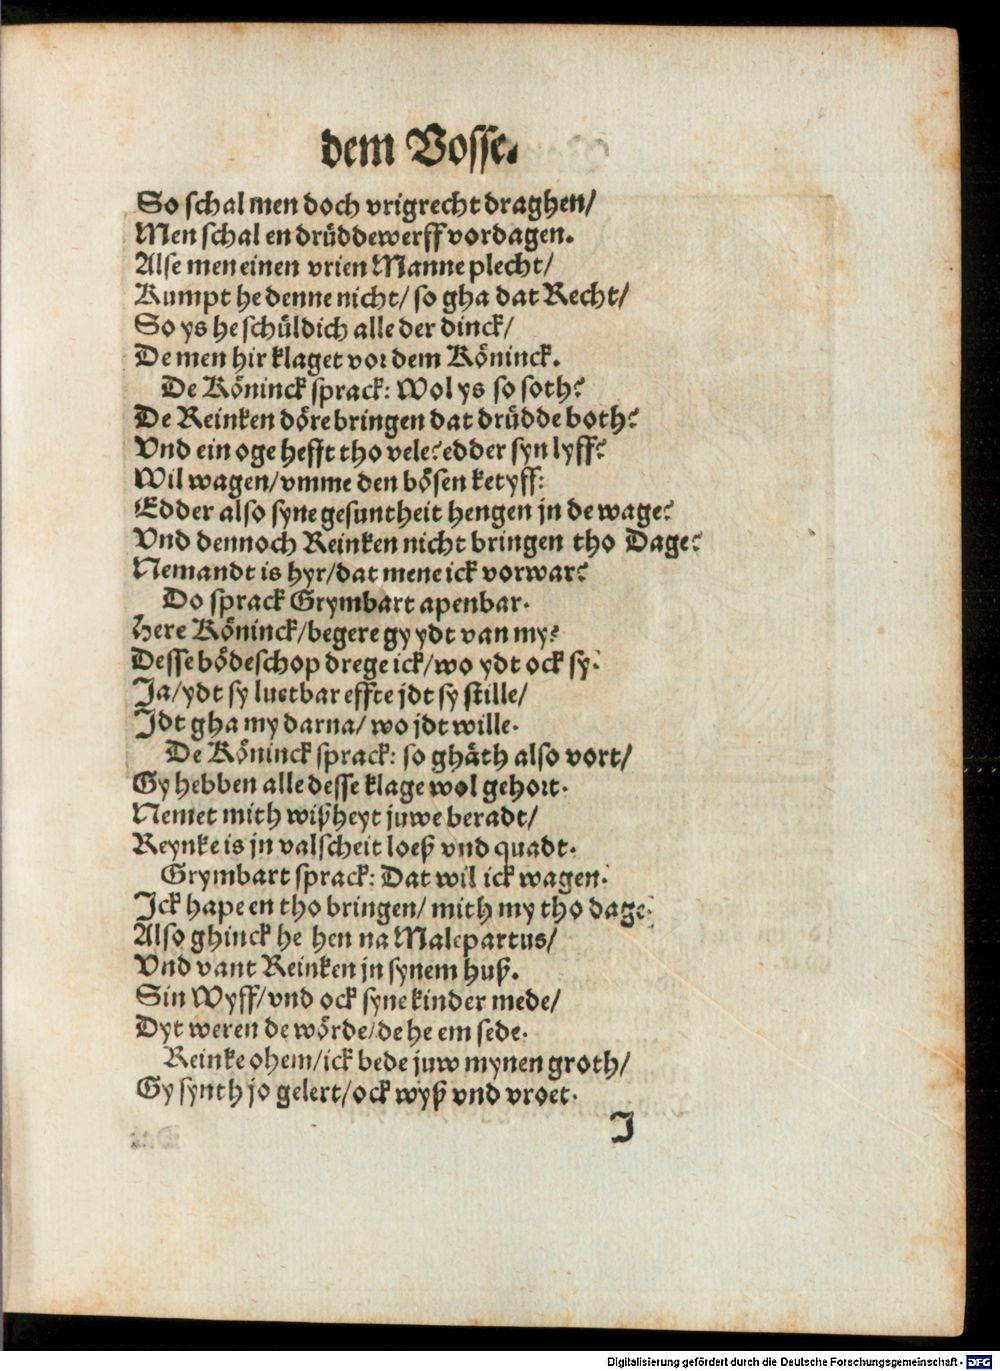 dem Vosse.
So schal men doch vrigrecht draghen/
Men schal en drüddewerff vordagen.
Alse men einen vrien Manne plecht/
Kumpt he denne nicht/ so gha dat Recht/
So ys he schüldich alle der dinck/
De men hir klaget vor dem Köninck.
De Köninck sprack: Wol ys so soth?
De Reinken döre bringen dat drüdde both?
Vnd ein oge hefft tho vele? edder syn lyff?
Wil wagen/ vmme den bösen ketyff:
Edder also syne gesuntheit hengen jn de wage?
Vnd dennoch Reinken nicht bringen tho Dage?
Nemandt is hyr/ dat mene ick vorwar?
Do sprack Grymbart apenbar.
Here Köninck/ begere gy ydt van my?
Desse bödeschop drege ick/ wo ydt ock sy.
Ja/ ydt sy luetbar effte jdt sy stille/
Jdt gha my darna/ wo jdt wille.
De Köninck sprack: so ghäth also vort/
Gy hebben alle desse klage wol gehort.
Nemet mith wißheyt juwe beradt/
Reynke is jn valscheit loeß vnd quadt.
Grymbart sprack: Dat wil ick wagen.
Jck hape en tho bringen/ mith my tho dage.
Also ghinck he hen na Malepartus/
Vnd vant Reinken jn synem huß.
Sin Wyff/ vnd ock syne kinder mede/
Dyt weren de wörde/ de he em sede.
Reinke ohem/ ick bede juw mynen groth/
Gy synth jo gelert/ ock wyß vnd vroet.
J
Digitalisierung gefördert durch die Deutsche Forschungsgemeinschaft - DFG